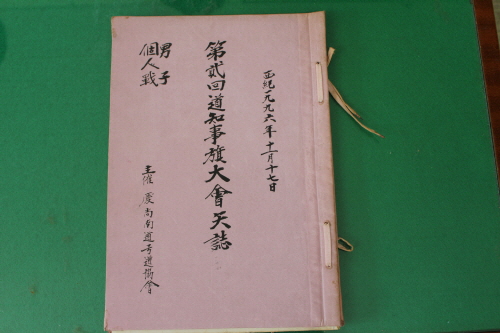 西紀一九九六年十一月十七日
第貳回道知事旗大會矢誌
男子
個人戰
主催 慶尚南道弓道協會